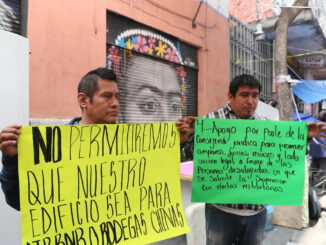 NO PERMITIREMOS
QUE NUESTRO
EDIFICIO SEA PARA
AIRBNB O BODEGAS CHINAS
1- Apoyo por parte de la
Consejería jurídica para
amparos,
acción legal a favor de las
Personas desalojadas, en que
se solicite la suspensión
con efectos restitutorios